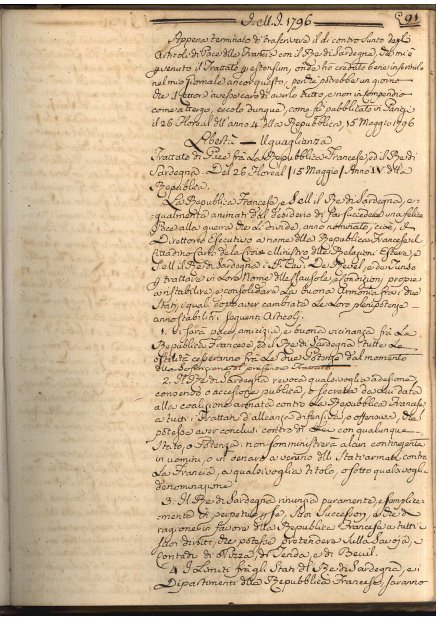 Sell. 1796
91
Appena terminato di trascrivere il di contro Sunto degl'
Articoli di Pace della Francia con il Re di Sardegna, del mè
pervenuto il Trattato per extensum, onde ho creduto bene inserirlo
nel mio giornale ancor questo, potrebbe un giorno
che i lettori aver caro di averlo tutto, e non in compendio
come a tergo, eccolo dunque, come fù pubblicato in Parigi
il 26 Floreal dell'anno 4 della Repubblica, 15 Maggio 1796
Libertà — Uguaglianza
Trattato di Pace frà La Repubblica Francese, ed il Re di
Sardegna. Del 26 Floreal / 15 Maggio / Anno IV della
Repubblica.
La Repubblica Francese, e Sell il Re di Sardegna, e-
gualmente animati dal desiderio di far succedere una felice
Pace alla guerra che li divide, anno nominato, cioè, il
Direttorio Esecutivo a nome della Repubblica Francese il
Cittadino Carlo de la Croix Ministro delle Relazioni Estere, e
Sell il Re di Sardegna i Cav. De Revel, e de Tonso
per trattare in Loro Nome delle clausole, e Condizioni proprie
a ristabilire, e consolidare La buona armonia frà i due
Stati, i quali dopo aver cambiate Le Loro plenipotenze
anno stabiliti i seguenti Articoli.
1. Vi sarà pace, amicizia, e buona vicinanza frà La
Repubblica Francese, ed il Re di Sardegna: tutte Le
ostilità cesseranno frà Le due Potenze dal momento
della soscrizione del presente Trattato.
2. Il Re di Sardegna revoca qualsivoglia adesione,
consenso, o accessione pubblica, o secreta da Lui data
alla coalizione armata contro La Repubblica Francese
a tutti i Trattati d'alleanza difensiva, o offensiva, che
potesse aver conclusi contro di Lei con qualunque
Stato, o Potenza: non somministrerà alcun contingente
in uomini, o in denaro a veruno delli Stati armati contro
La Francia, a qualsivoglia titolo, o sotto qualsivoglia
denominazione.
3. Il Re di Sardegna rinunzia puramente, e semplice-
mente in perpetuo per se, Suoi Successori, e
ragione in favore della Repubblica Francese a tutti i
suoi diritti, che potesse pretendere sulla Savoja, e
Contadi di Nizza, di Tenda, e di Beuil.
4. I Limiti frà gli Stati del Re di Sardegna, e i
Dipartimenti della Repubblica Francese, saranno